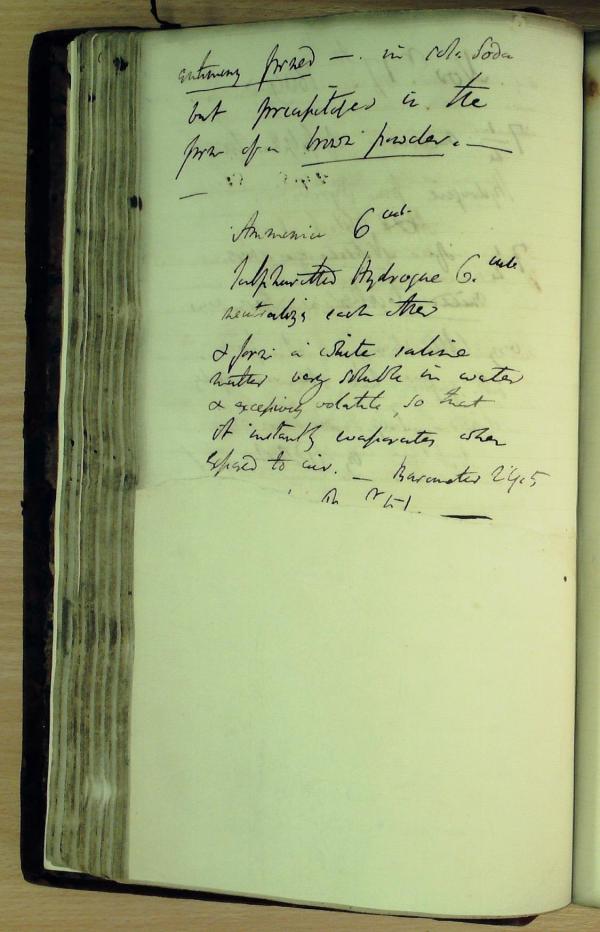 antimony formed —. in sol. Soda
but precipitated in the
form of a brown powder. —
—
Ammonia 6 cub.
Sulphuretted Hydrogene 6. cub
neutralize each other
& form a white saline
matter very soluble in water
& excessively volatile, so that
it instantly evaporates when
exposed to air. — Barometer 29.5
51. —